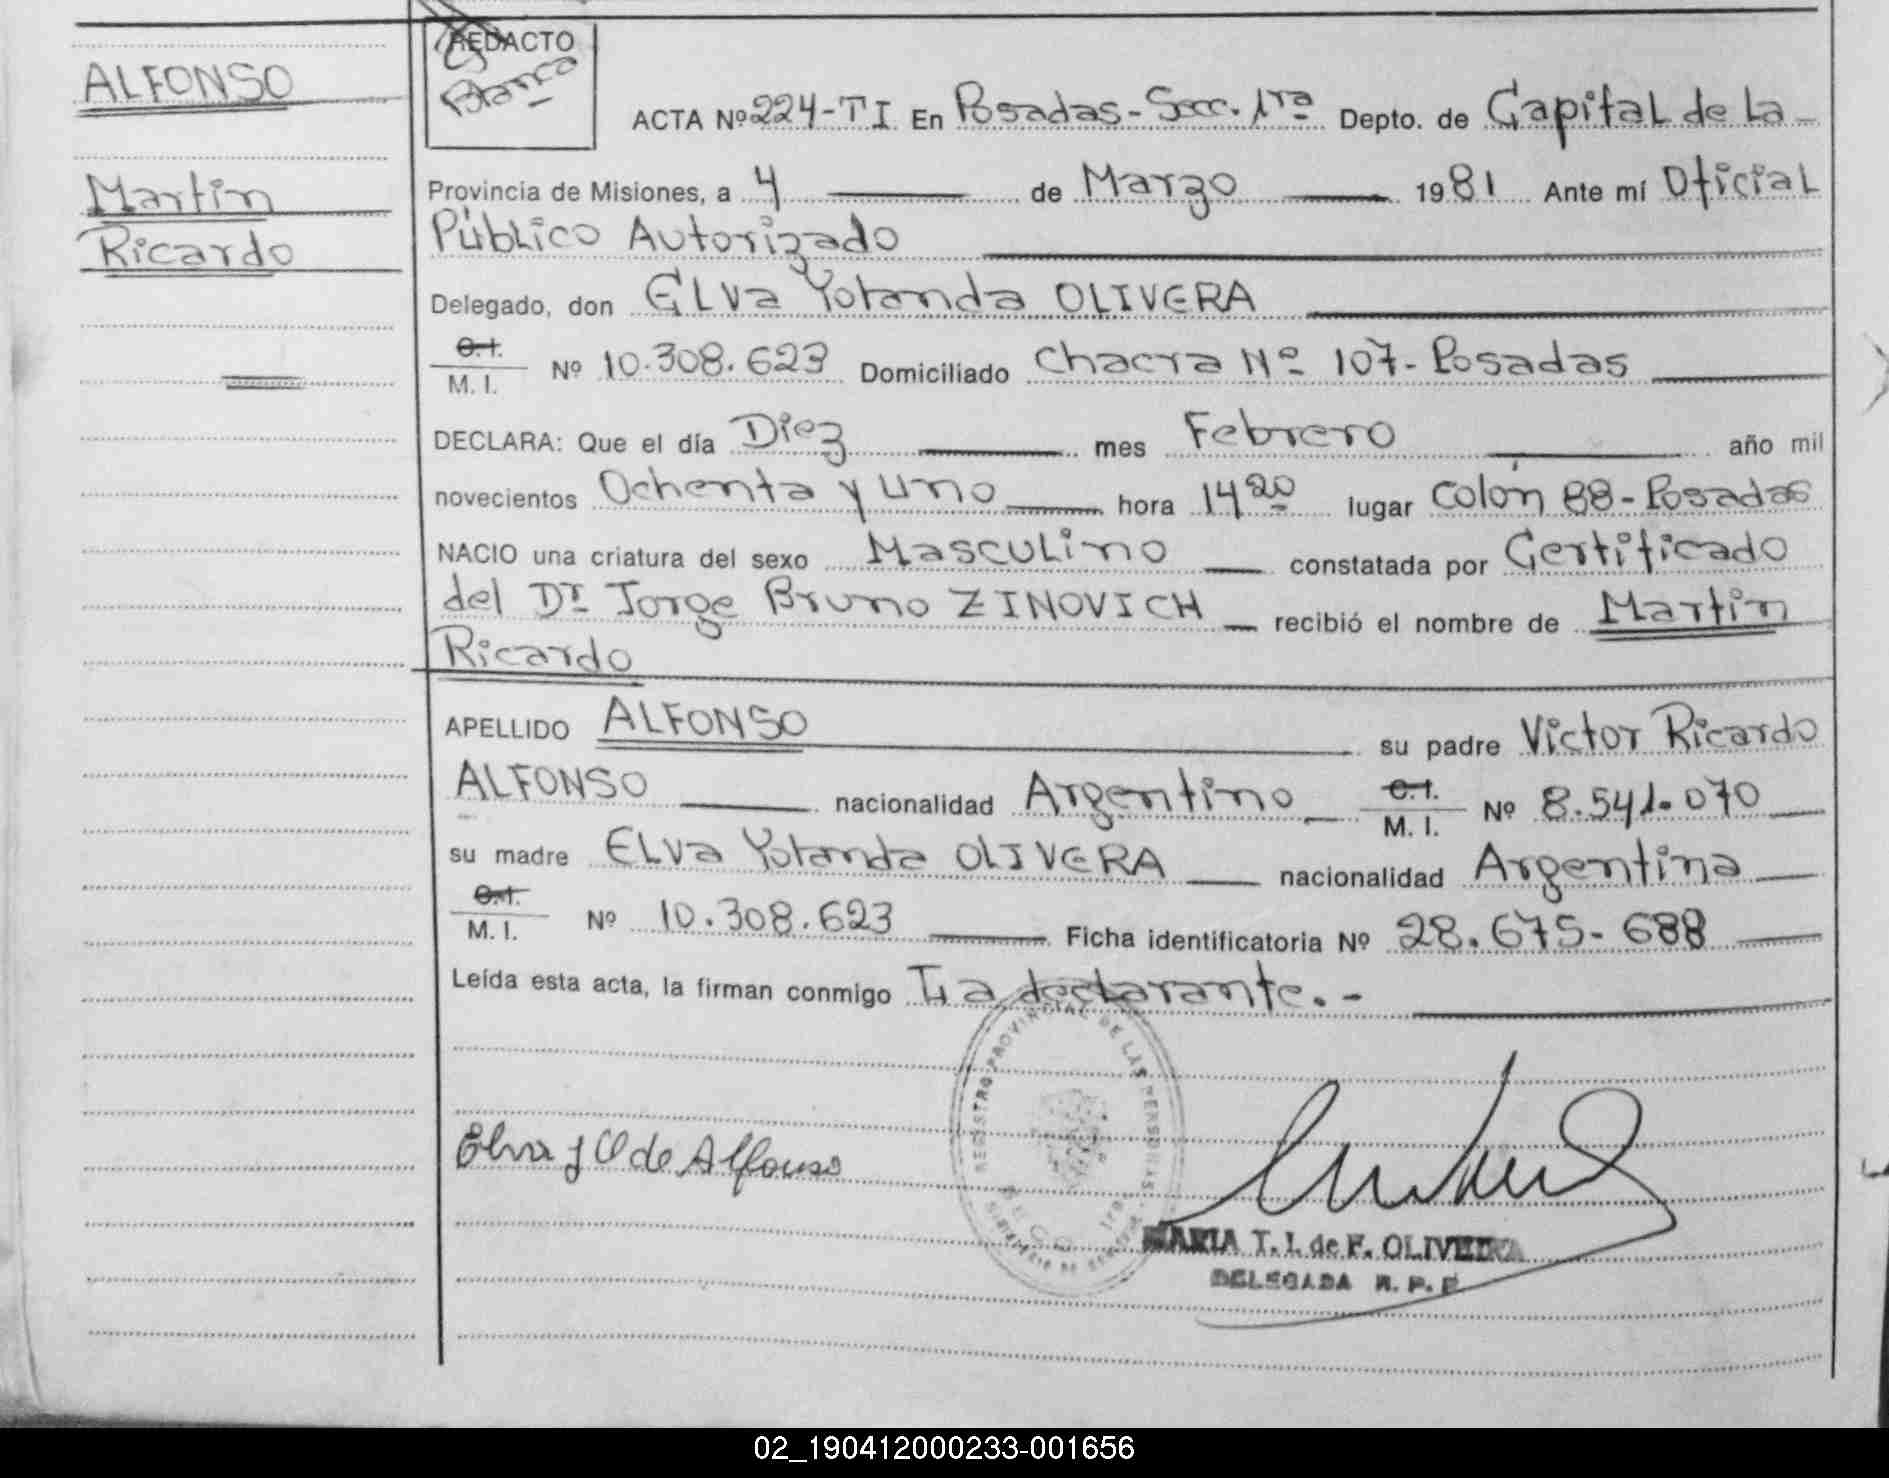 ALFONSO
Martin
Ricardo
REDACTO
Blanca
ACTA Nº 224-TI En Posadas-Secc. 1ra Depto. de Capital de La
Provincia de Misiones, a 4 de Marzo 1981 Ante mí Oficial
Público Autorizado
Delegado, don ELva Yolanda OLIVERA
C.I.
M. I. Nº 10.308.623 Domiciliado Chacra Nº 107-Posadas
DECLARA: Que el día Diez mes Febrero año mil
novecientos Ochenta y uno hora 14 20 lugar Colón 88-Posadas
NACIO una criatura del sexo Masculino constatada por Certificado
del Dr Jorge Bruno ZINOVICH recibió el nombre de Martin
Ricardo
APELLIDO ALFONSO su padre Victor Ricardo
ALFONSO nacionalidad Argentino C.I. M. I. Nº 8.541.070
su madre ELva Yolanda OLIVERA nacionalidad Argentina
C.I.
M. I. Nº 10.308.623 Ficha identificatoria Nº 28.675-688
Leída esta acta, la firman conmigo La declarante.-
REGISTRO PROVINCIAL DE LAS PERSONAS
Elva y O de Alfonso
MARIA T. I. de F. OLIVEIRA
DELEGADA R. P. P.
02_190412000233-001656